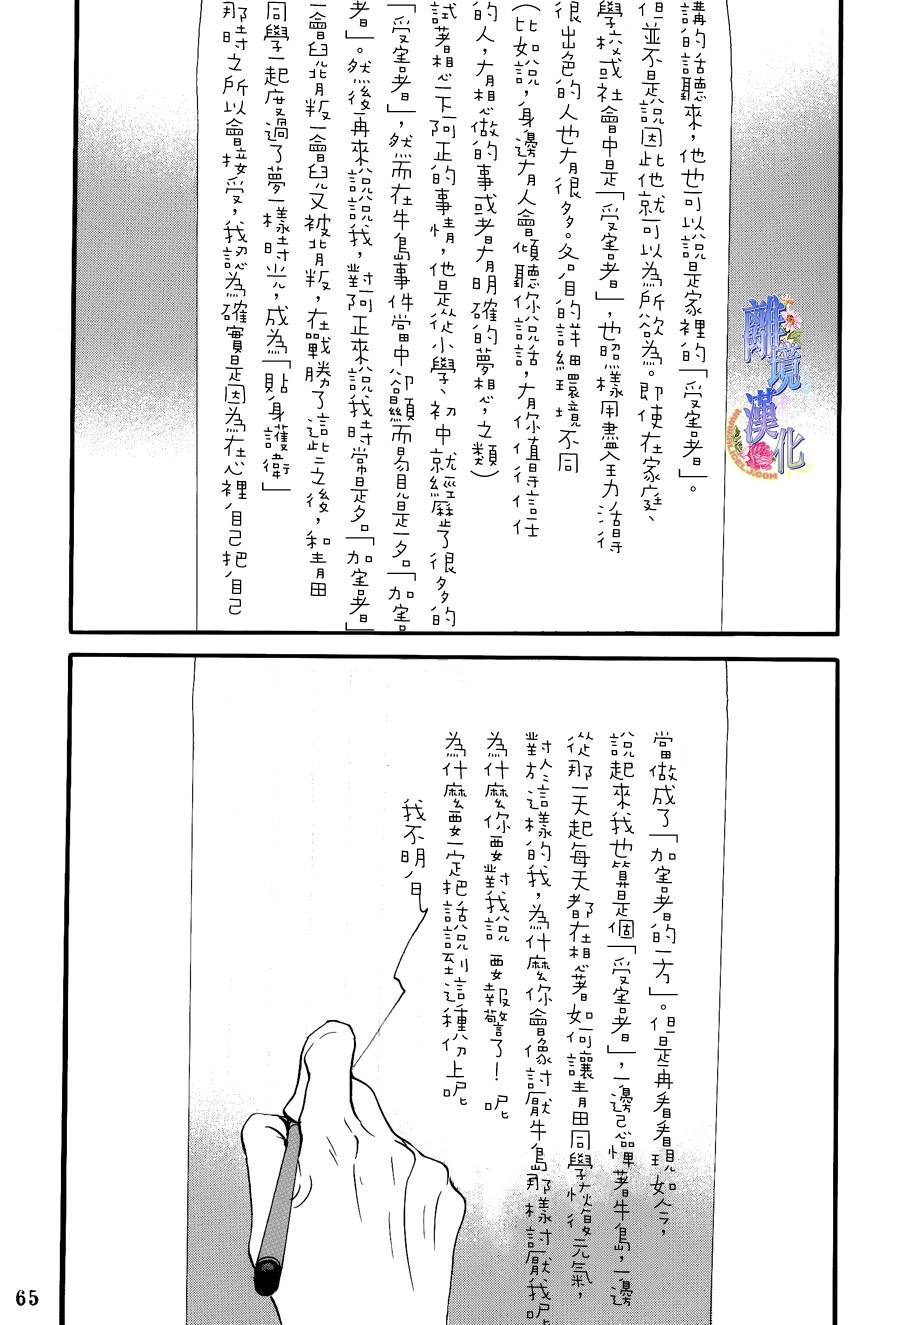 講的話聽來，他也可以說是家裡的「受害者」。
但並不是說因此他就可以為所欲為。即使在家庭、
學校或社會中是「受害者」，也照樣用盡全力活得
很出色的人也大有很多。各自的詳細環境不同
(比如說，身邊有人會傾聽你說話，有你值得信任
的人，有想做的事或者有明確的夢想，之類)
試著想一下阿正的事情，他是從小學、初中就經歷了很多的
「受害者」，然而在牛島事件當中卻顯而易見是一名「加害
者」。然後再來說說我，對阿正來說我時常是名「加害者」
一會兒背叛一會兒又被背叛，在戰勝了這些之後，和青田
同學一起度過了夢一樣時光，成為「貼身護衛」
那時之所以會接受，我認為確實是因為在心裡自己把自己
當做成了「加害者的一方」。但是再看看現如今，
說起來我也算是個「受害者」，一邊忌憚著牛島，一邊
從那一天起每天都在想著如何讓青田同學恢復元氣，
對於這樣的我，為什麼你會像討厭牛島那樣討厭我呢
為什麼你要對我說 要報警了！呢
為什麼要一定把話說到這種份上呢
我不明白
離境漢化
65